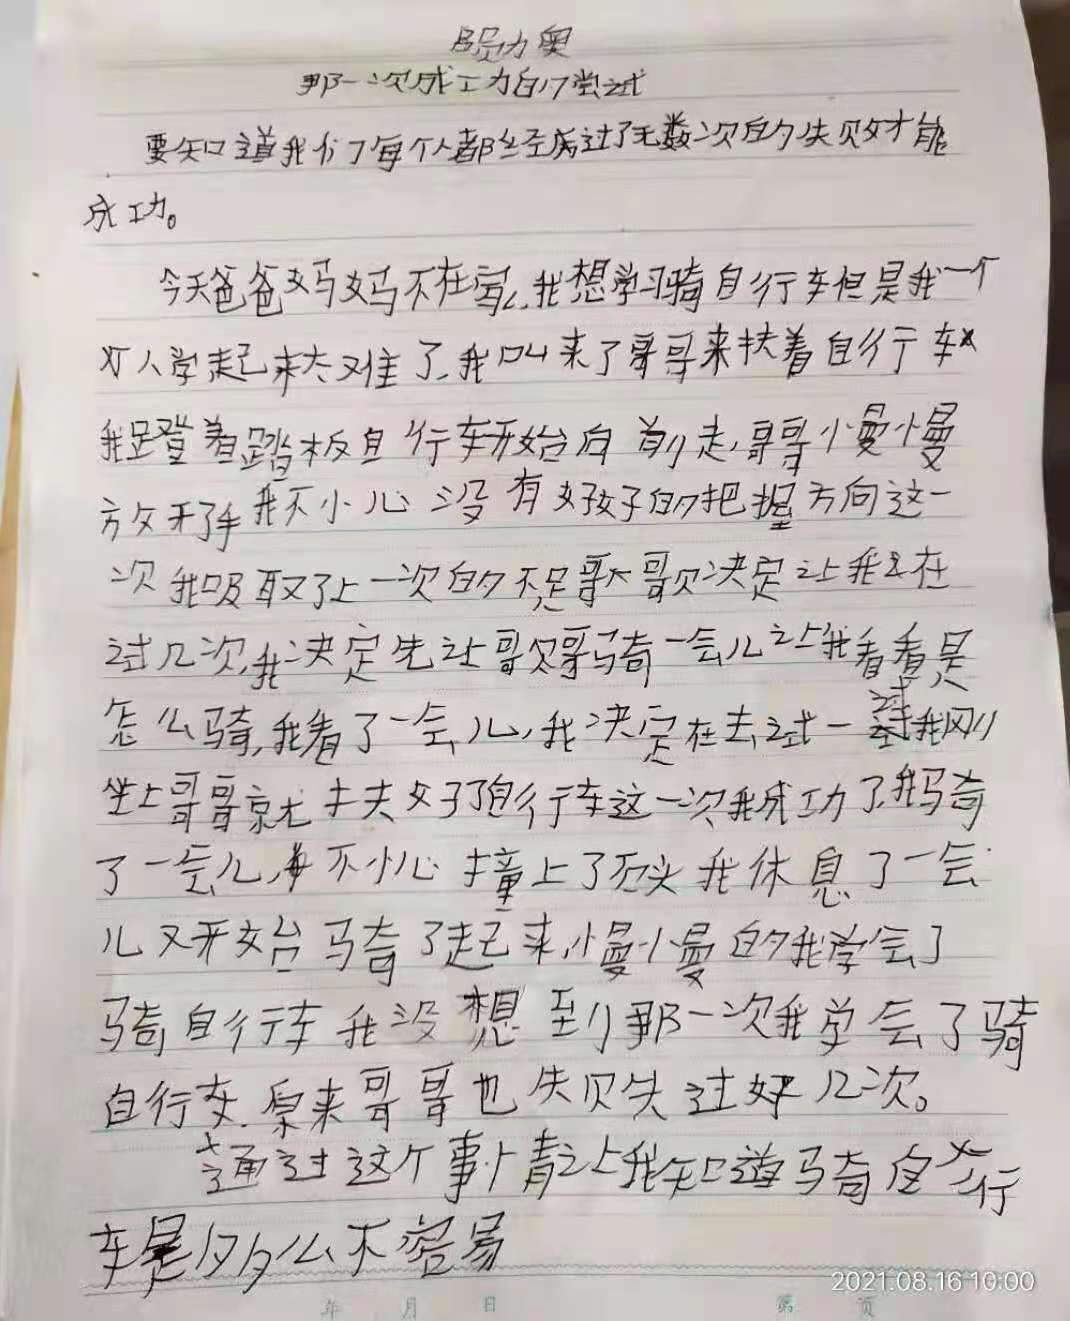 那一次成功的尝试
要知道我们每个人都经历过了无数次的失败才能
成功。
今天爸爸妈妈不在家,我想学习骑自行车但是我一个
人学起来太难了,我叫来了哥哥来扶着自行车
我蹬着踏板自行车开始向前走,哥哥慢慢
放开了手我不小心没有好好的把握方向这一
次我吸取了上一次的不足哥哥决定让我在
试几次,我决定先让哥哥骑一会儿让我看看是
怎么骑,我看了一会儿,我决定在去试一试我刚
坐上哥哥就扶好了自行车这一次我成功了,我骑
了一会儿,不小心撞上了石头我休息了一会
儿又开始骑了起来,慢慢的我学会了
骑自行车我没想到那一次我学会了骑
自行车.原来哥哥也失败失过好几次。
通过这个事情让我知道骑自行
车是多么不容易
年 月 日 第 页
2021.08.16 10:00